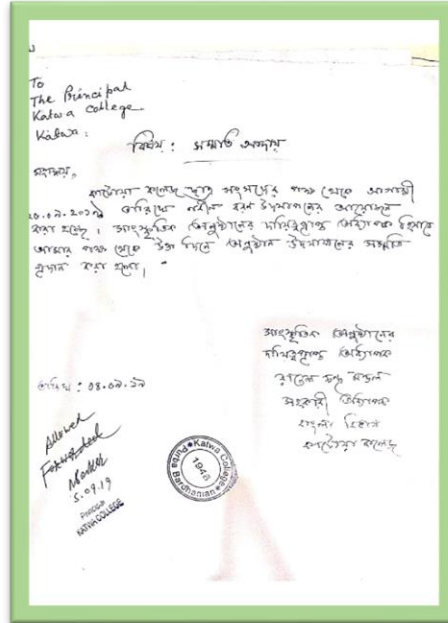 To
The Principal
Katwa College
Katwa
বিষয় : সম্মতি প্রদান
মহাশয়,
কাটোয়া কলেজ ছাত্র সংসদের পক্ষ থেকে আগামী
তারিখে নবীন বরণ উদযাপনের আয়োজন
করা হচ্ছে। সাংস্কৃতিক অনুষ্ঠানের দায়িত্বপ্রাপ্ত অধ্যাপক হিসাবে
আমার পক্ষ থেকে উক্ত দিনে অনুষ্ঠান উদযাপনের সম্মতি
প্রদান করা হলো।
সাংস্কৃতিক অনুষ্ঠানের
দায়িত্বপ্রাপ্ত অধ্যাপক
মন্ডল
সহকারী অধ্যাপক
বাংলা বিভাগ
কাটোয়া কলেজ
তারিখ : 04.09.19
Allowed
Forwarded
5.09.19
Principal
KATWA COLLEGE
Katwa College
1948
Purba Bardhaman